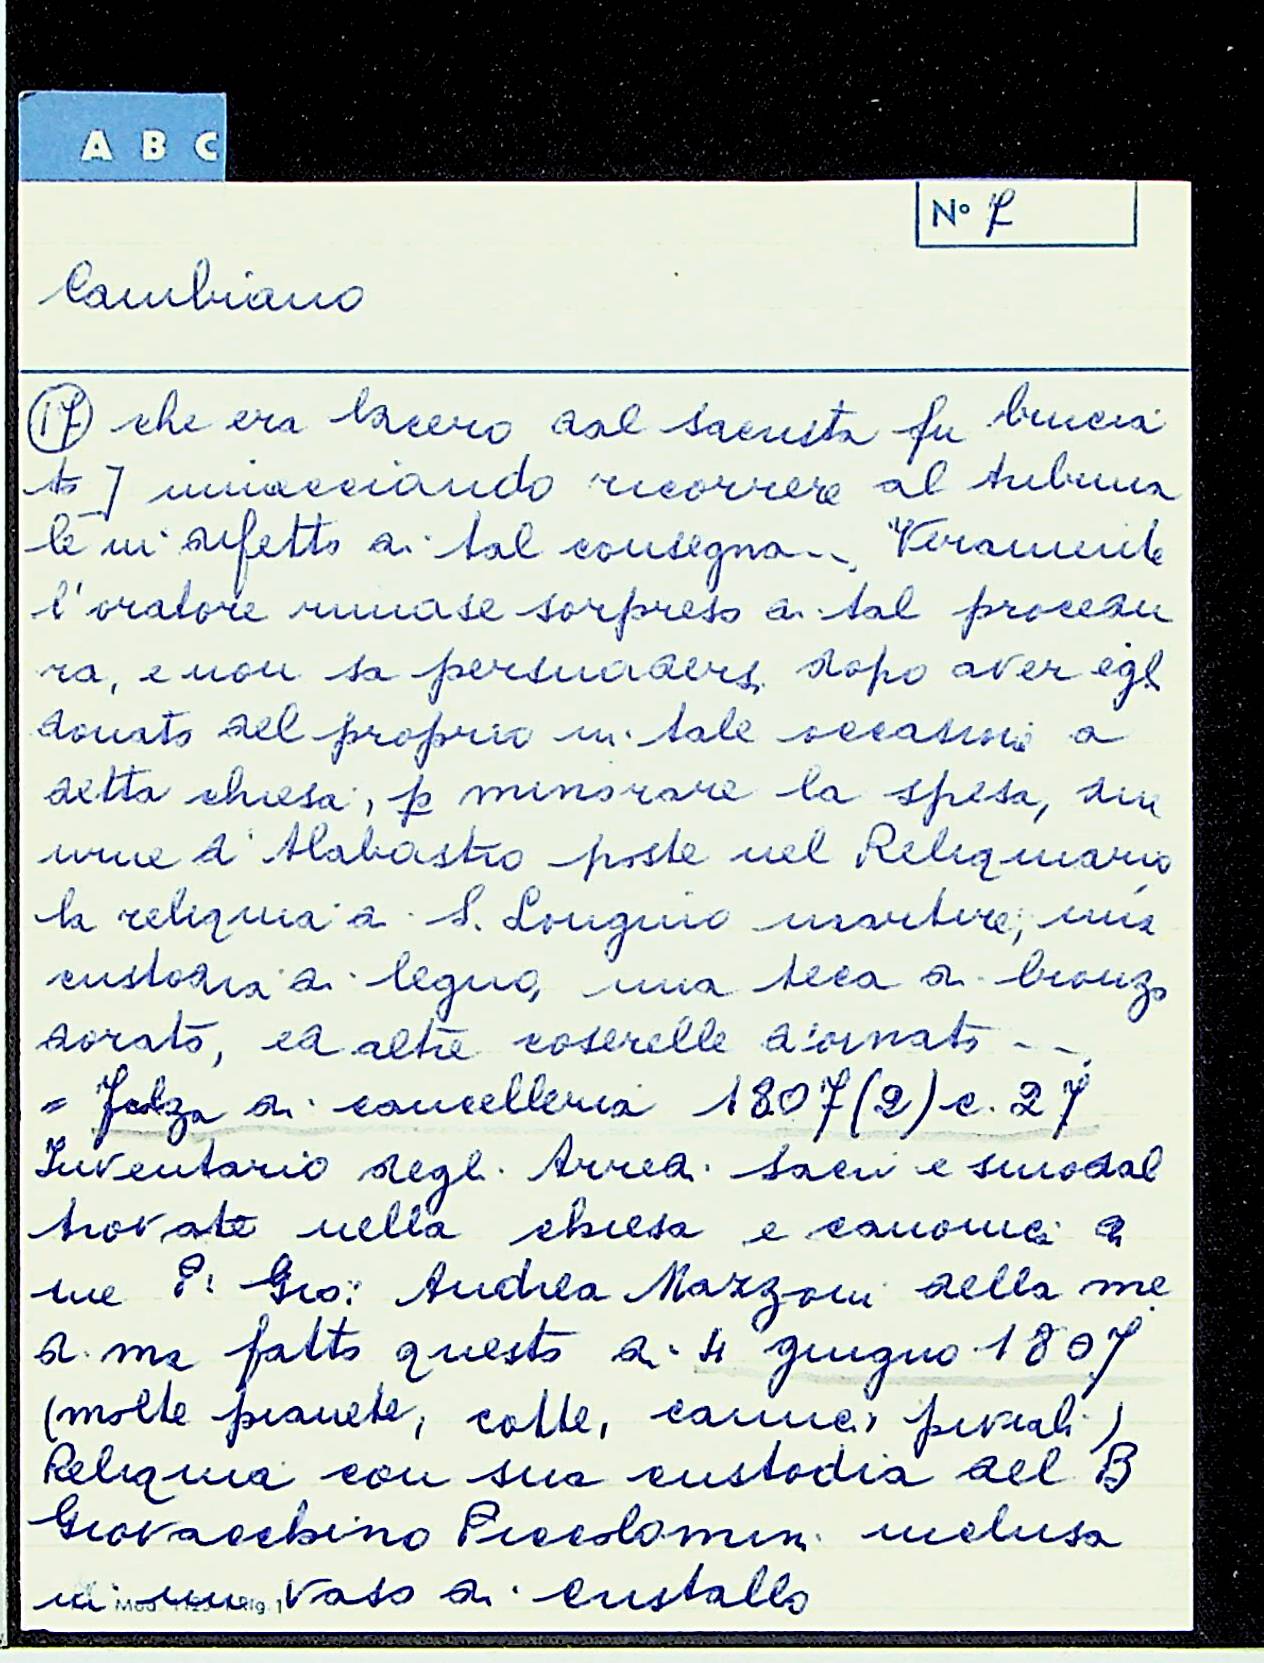 A B C
N° 7
Cambiano
17 che era lacero dal sacrista fu brucia
to] minacciando ricorrere al tribuna
le in difetto di tal consegna... Veramente
l'oratore rimase sorpreso di tal procedu
ra, e non sa persuadersi dopo aver egli
donato del proprio in tale occasione a
detta chiesa, p minorare la spesa, due
urne d'Alabastro poste nel Reliquario
la reliquia di S. Longino martire, una
custodia di legno, una teca di bronzo
dorato, ed altre coserelle d'ornato - -
= Filza di cancelleria 1807 (2) c. 27
Inventario degli Arredi sacri e
trovate nella chiesa e canonica da
me P: Gio: Andrea Mazzoni della me
di ma fatto questo di 4 giugno 1807
(molte pianete, cotte, camici, piviali)
Reliquia con sua custodia del B
Giovacchino Piccolomini inclusa
in un vaso di cristallo